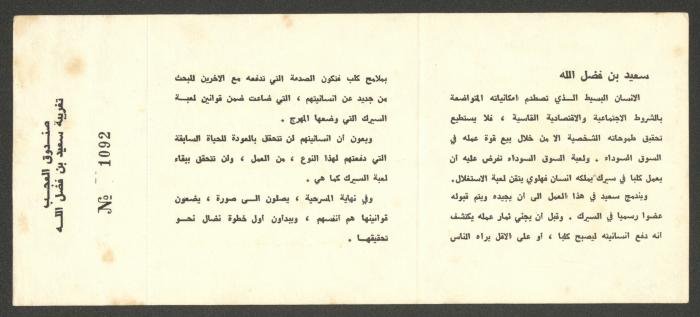 سعيد بن فضل الله
الانسان البسيط الذي تصطدم امكانياته المتواضعة
بالشروط الاجتماعية والاقتصادية القاسية ، فلا يستطيع
تحقيق طموحاته الشخصية الا من خلال بيع قوة عمله في
السوق السوداء . ولعبة السوق السوداء تفرض عليه ان
يعمل كلبا في سيرك يملكه انسان فهلوي يتقن لعبة الاستغلال.
ويندمج سعيد في هذا العمل الى ان يجيده ويتم قبوله
عضوا رسميا في السيرك . وقبل ان يجني ثمار عمله يكتشف
انه دفع انسانيته ليصبح كلبا ، او على الاقل يراه الناس
بملامح كلب فتكون الصدمة التي تدفعه مع الاخرين للبحث
من جديد عن انسانيتهم ، التي ضاعت ضمن قوانين لعبة
السيرك التي وضعها المهرج .
ويعون أن انسانيتهم لن تتحقق بالعودة للحياة السابقة
التي دفعتهم لهذا النوع ، من العمل ، ولن تتحقق ببقاء
لعبة السيرك كما هي .
وفي نهاية المسرحية ، يصلون الى صورة ، يضعون
قوانينها هم انفسهم ، ويبدأون اول خطوة نضال نحو
تحقيقها .
صندوق العجب
تغريبة سعيد بن فضل الله
№ 1092